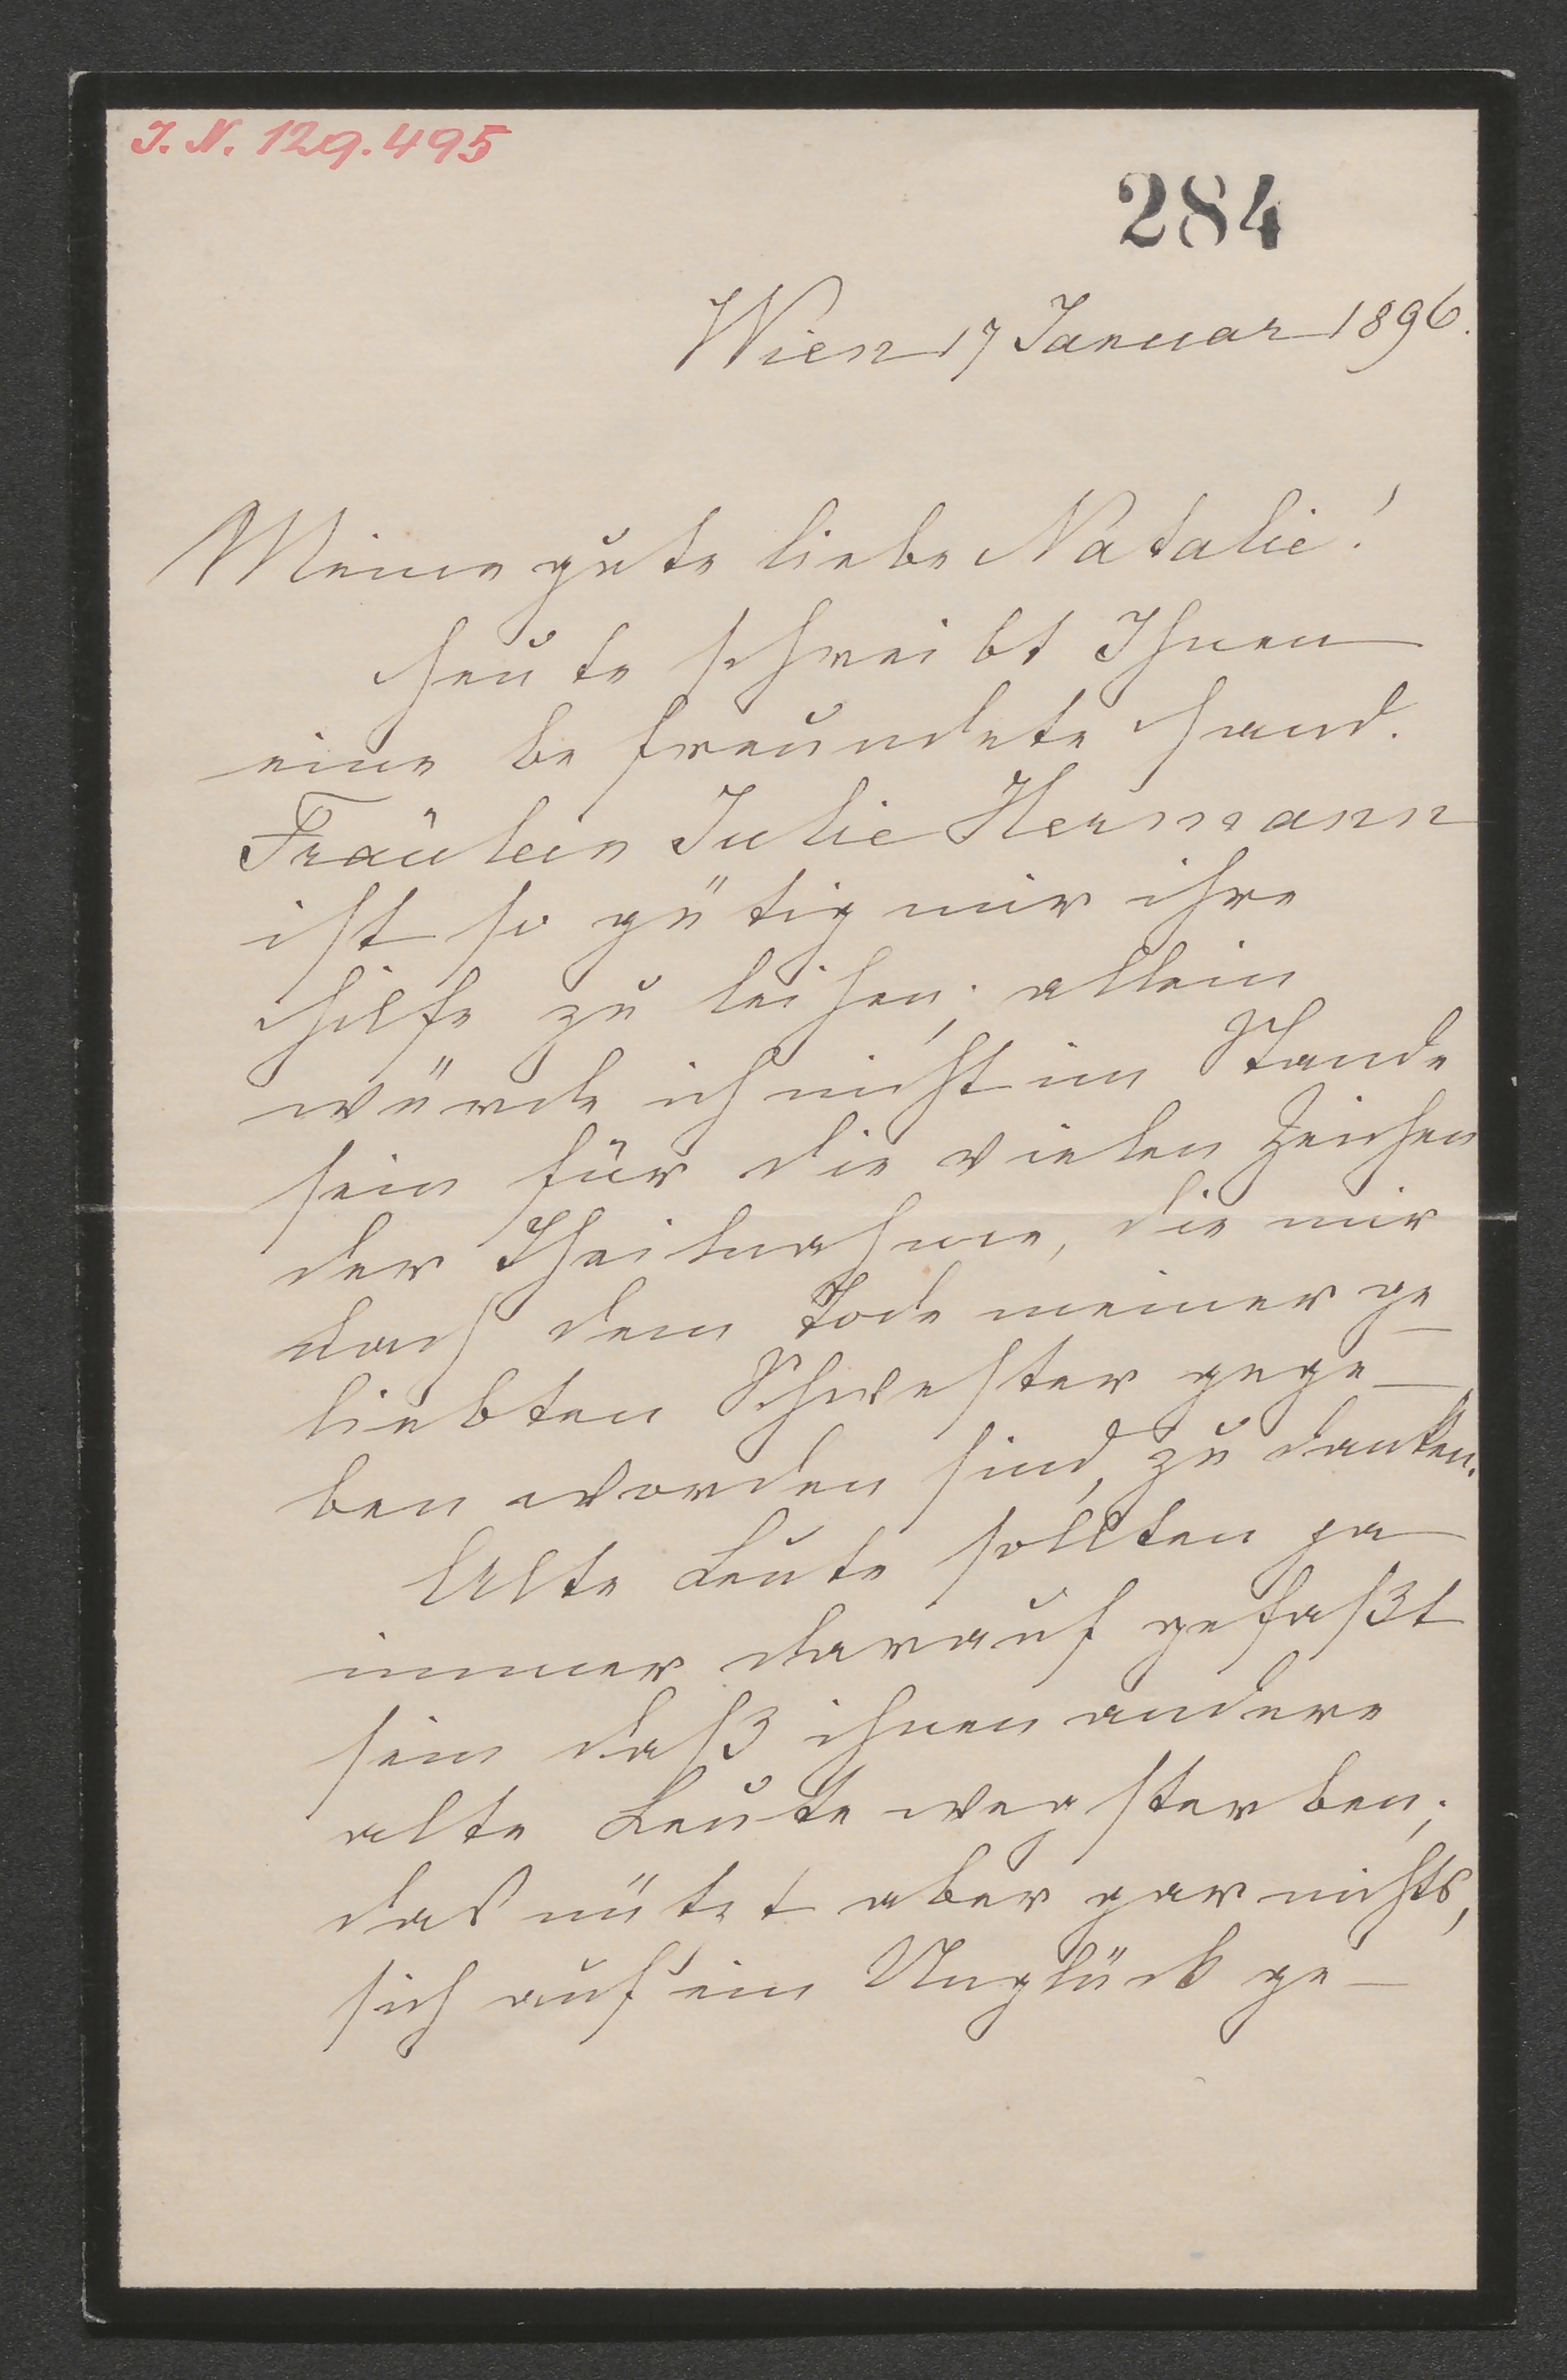 J. N. 129.495
284
Wien 17 Januar 1896.
Meine gute liebe Natalie!
Heute schreibt Ihnen
eine befreundete Hand.
Fräulein Julie Hermann
ist so gütig mir ihre
Hilfe zu leihen; allein
würde ich nicht im Stande
sein für die vielen Zeichen
der Theilnahme, die mir
nach dem Tode meiner ge-
liebten Schwester gege-
ben worden sind, zu danken.
Alte Leute sollten ja
immer darauf gefaßt
sein daß ihnen andere
alte Leute wegsterben;
das nützt aber gar nichts,
sich auf ein Unglück ge-